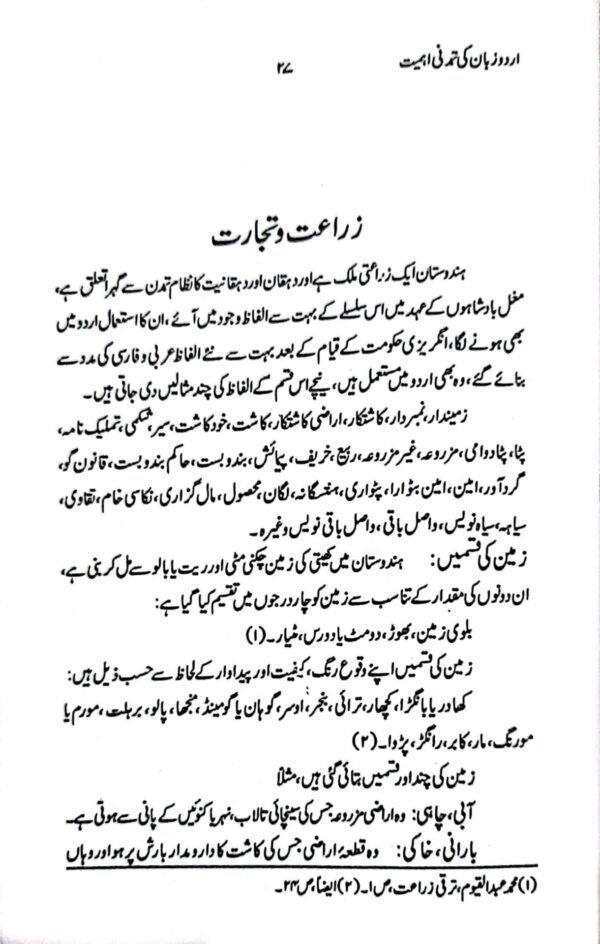 اردو زبان کی تمدنی اہمیت
۲۷
زراعت و تجارت
ہندوستان ایک زراعتی ملک ہے اور دہقان اور دہقانیت کا نظام تمدن سے گہرا تعلق ہے،
مغل بادشاہوں کے عہد میں اس سلسلے کے بہت سے الفاظ وجود میں آئے، ان کا استعمال اردو میں
بھی ہونے لگا، انگریزی حکومت کے قیام کے بعد بہت سے نئے الفاظ عربی و فارسی کی مدد سے
بنائے گئے، وہ بھی اردو میں مستعمل ہیں، نیچے اس قسم کے الفاظ کی چند مثالیں دی جاتی ہیں۔
زمیندار، نمبردار، کاشتکار، اراضی کاشتکار، کاشت، خود کاشت، سیر، شکمی، تملیک نامہ،
پٹا، پٹا دوامی، مزروعہ، غیر مزروعہ، ربیع، خریف، پیمائش، بندوبست، حاکم بندوبست، قانون گو،
گرد آور، امین، امین بٹوارا، پٹواری، ہفتگانہ، لگان، محصول، مال گزاری، نکاسی خام، تقاوی،
سیاہہ، سیاہ نویس، واصل باقی، واصل باقی نویس وغیرہ۔
زمین کی قسمیں: ہندوستان میں کھیتی کی زمین چکنی مٹی اور ریت یا بالو سے مل کر بنی ہے،
ان دونوں کی مقدار کے تناسب سے زمین کو چار درجوں میں تقسیم کیا گیا ہے:
بلوی زمین، بھوڑ، دومٹ یا دورس، مٹیار۔ (۱)
زمین کی قسمیں اپنے وقوع رنگ، کیفیت اور پیداوار کے لحاظ سے حسب ذیل ہیں:
کھادر یا بانگڑا، کچھار، ترائی، بنجر، اوسر، گوہان یا گومینڈ، منجھا، پالو، برہلت، مورم یا
مورنگ، مار، کابر، رانکڑ، پڑوا۔ (۲)
زمین کی چند اور قسمیں بتائی گئی ہیں، مثلاً
آبی، چاہی: وہ اراضی مزروعہ جس کی سینچائی تالاب، نہر یا کنوئیں کے پانی سے ہوتی ہے۔
بارانی، خاکی: وہ قطعۂ اراضی جس کی کاشت کا دارومدار بارش پر ہو اور وہاں
(۱) محمد عبدالقیوم، ترقی زراعت، ص۱۔ (۲) ایضاً، ص۲۴۔